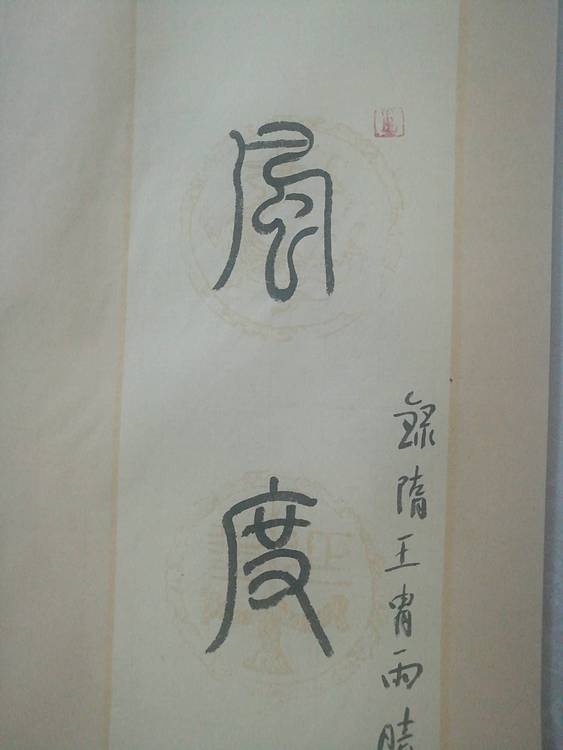 風度
錄隋王胄雨晴